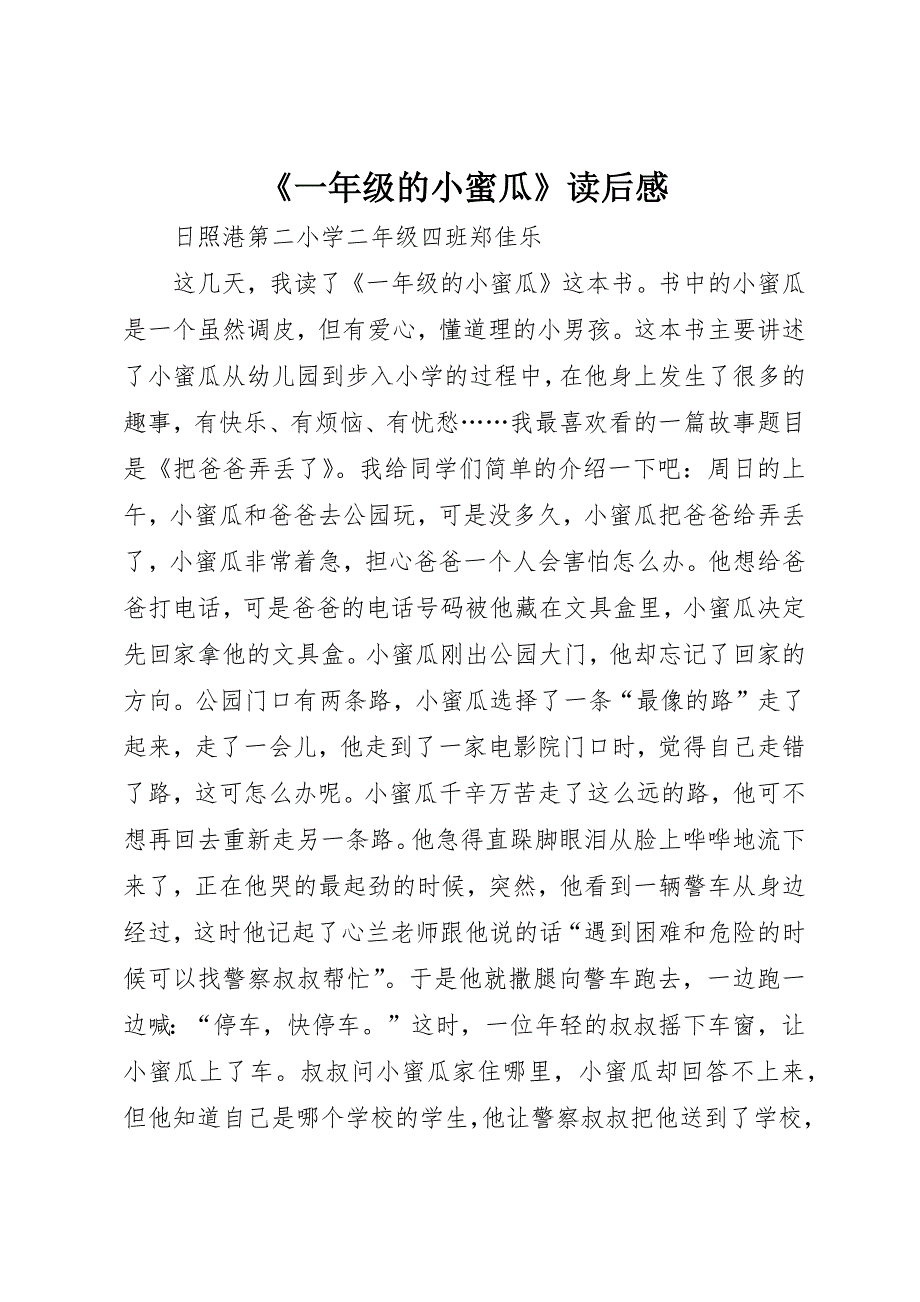 《一年级的小蜜瓜》读后感
日照港第二小学二年级四班郑佳乐
这几天，我读了《一年级的小蜜瓜》这本书。书中的小蜜瓜
是一个虽然调皮，但有爱心，懂道理的小男孩。这本书主要讲述
了小蜜瓜从幼儿园到步入小学的过程中，在他身上发生了很多的
趣事，有快乐、有烦恼、有忧愁……我最喜欢看的一篇故事题目
是《把爸爸弄丢了》。我给同学们简单的介绍一下吧：周日的上
午，小蜜瓜和爸爸去公园玩，可是没多久，小蜜瓜把爸爸给弄丢
了，小蜜瓜非常着急，担心爸爸一个人会害怕怎么办。他想给爸
爸打电话，可是爸爸的电话号码被他藏在文具盒里，小蜜瓜决定
先回家拿他的文具盒。小蜜瓜刚出公园大门，他却忘记了回家的
方向。公园门口有两条路，小蜜瓜选择了一条“最像的路”走了
起来，走了一会儿，他走到了一家电影院门口时，觉得自己走错
了路，这可怎么办呢。小蜜瓜千辛万苦走了这么远的路，他可不
想再回去重新走另一条路。他急得直跺脚眼泪从脸上哗哗地流下
来了，正在他哭的最起劲的时候，突然，他看到一辆警车从身边
经过，这时他记起了心兰老师跟他说的话“遇到困难和危险的时
候可以找警察叔叔帮忙”。于是他就撒腿向警车跑去，一边跑一
边喊：“停车，快停车。”这时，一位年轻的叔叔摇下车窗，让
小蜜瓜上了车。叔叔问小蜜瓜家住哪里，小蜜瓜却回答不上来，
但他知道自己是哪个学校的学生，他让警察叔叔把他送到了学校，